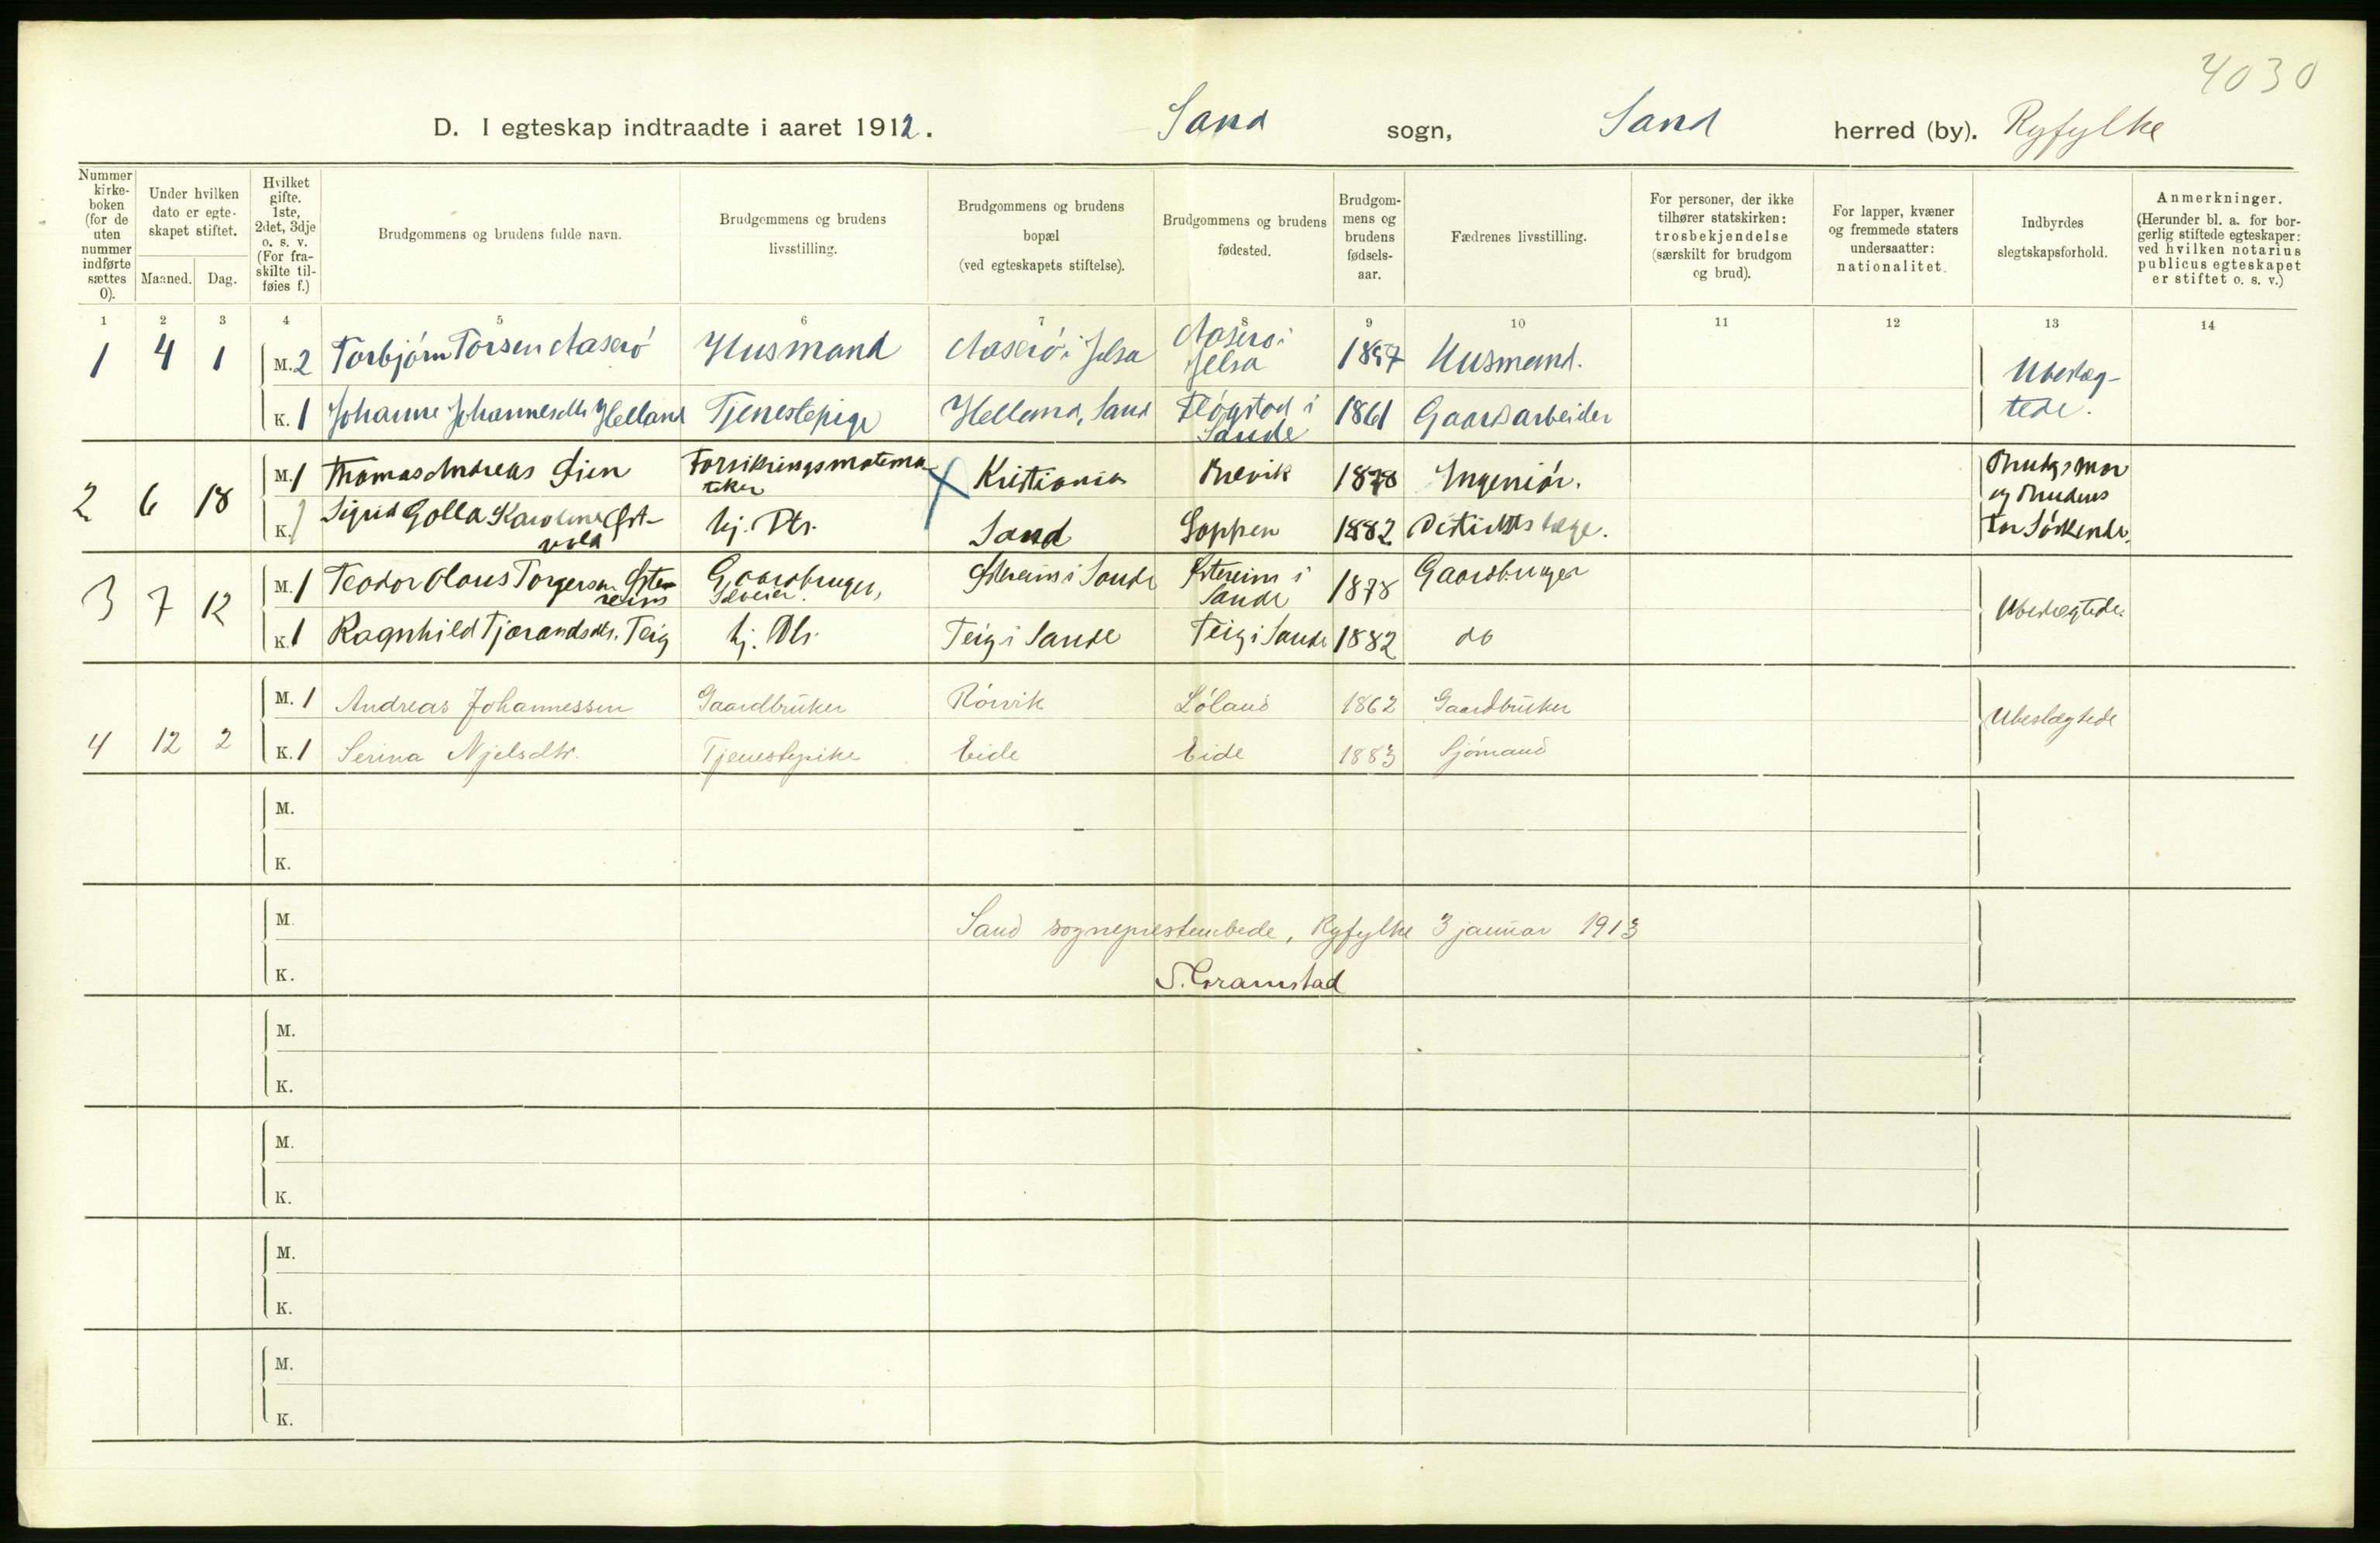 4030
D. I egteskap indtraadte i aaret 1912. Sand sogn, Sand herred (by). Ryfylke
Nummer kirke-boken (for de uten nummer indførte sættes 0).
Under hvilken dato er egte-skapet stiftet.
Maaned. Dag.
Hvilket gifte. 1ste, 2det, 3dje o. s. v. (For fra-skilte til-føies f.)
Brudgommens og brudens fulde navn.
Brudgommens og brudens livsstilling.
Brudgommens og brudens bopæl (ved egteskapets stiftelse).
Brudgommens og brudens fødested.
Brudgom-mens og brudens fødsels-aar.
Fædrenes livsstilling.
For personer, der ikke tilhører statskirken: trosbekjendelse (særskilt for brudgom og brud).
For lapper, kvæner og fremmede staters undersaatter: nationalitet.
Indbyrdes slegtskapsforhold.
Anmerkninger. (Herunder bl. a. for bor-gerlig stiftede egteskaper: ved hvilken notarius publicus egteskapet er stiftet o. s. v.)
1 2 3 4 5 6 7 8 9 10 11 12 13 14
1 4 1 M. 2 Torbjørn Torsen Aaserö Husmand Aaserö i Jelsa Aaserö i Jelsa 1857 Husmand. Ubeslæg-tede.
K. 1 Johanne Johannesdtr Helland Tjenestepige Helland, Sand Fløgstad i Sande 1861 Gaardsarbeider
2 6 18 M. 1 Thomas Andreas Sien Forsikringsmatema-tiker X Kristiania Brevik 1878 Ingeniör. Brudgs mor og brudens far Söskende.
K. 1 Sigrid Golla Karoline Øst-vold hj. Dtr. Sand Loppen 1882 Distriktslæge.
3 7 12 M. 1 Teodor Olaus Torgersen Østereim Gaardbruger, Selveier. Østereim i Sande Østereim i Sande 1878 Gaardbruger Ubeslægtede.
K. 1 Ragnhild Tjærandsdtr. Teig hj. Dtr. Teig i Sande Teig i Sande 1882 do
4 12 2 M. 1 Andreas Johannessen Gaardbruker Rörvik Löland 1862 Gaardbruker Ubeslægtede
K. 1 Serina Njelsdtr. Tjenestepike Eide Eide 1883 Sjömand
M.
K.
M. Sand sogneprestembede, Ryfylke 3 januar 1913
K. S. Gramstad
M.
K.
M.
K.
M.
K.
M.
K.